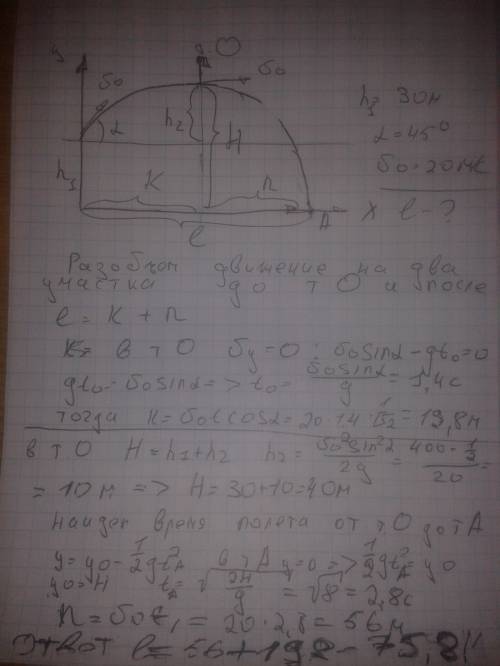 y
O
υ₀
υ₀
h₁ 30м
α
h₂
H
α=45°
h₁
υ₀ = 20 м/с
K
n
l
A
x
l - ?
Разобьем движение на два
участка до т О и после
l = K + n
K= в т О υy=0 : υ₀sinα - gt₀=0
gt₀ = υ₀sinα => t₀ = υ₀sinα/g = 1,4c
тогда K = υ₀tcosα = 20·1,4·1/√2 = 19,8м
в т О H = h₁+h₂ h₂ = υ₀²sin²α/2g = 400·1/2/20 =
= 10м => H = 30+10=40м
найдем время полета от т.О до т А
y = y₀ - 1/2 gt²A в т A y=0 => 1/2 gt²A = y₀
y₀=H tA = √2H/g = √8 = 2,8c
n = υ₀t₁ = 20·2,8 = 56м
Ответ l = 56+19,8 = 75,8м